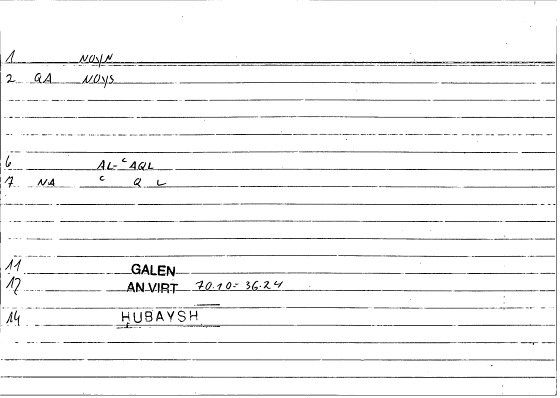 1 NOῦN
2 GA NOῦS
6 AL-ᶜAQL
7 NA ᶜ Q L
11 GALEN
12 AN VIRT 70.10 = 36.24
14 ḤUBAYSH